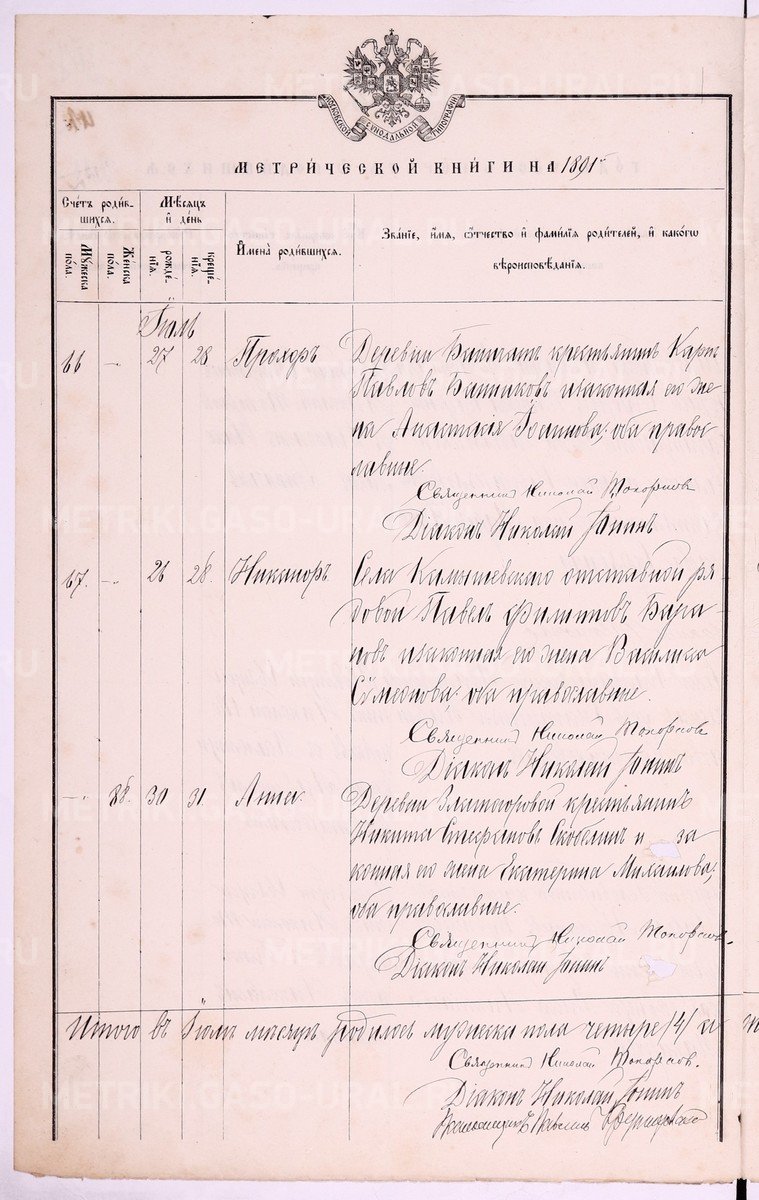 МОСКОВСКОЙ СѴНОДАЛЬНОЙ ТИПОГРАФІИ
МЕТРИ́ЧЕСКОЙ КНИ́ГИ НА 1891 г.
Счетъ роди́в-
шихся.
Мꙋжеска
по́ла.
Же́нска
по́ла.
Мѣ́сяцъ
и҆ де́нь
рожде́-
нїя.
креще́-
нїя.
И҆мена̀ роди́вшихся.
Зва́нїе, и҆́мя, ѻ҆́тчество и҆ фами́лїя роди́телей, и҆ како́гѡ
вѣроисповѣ́данїя.
Іюль
66 — 27 28 Прохоръ Деревни крестьянинъ Карпъ
Павловъ Банниковъ и законная его же-
на Анастасія Іоаннова; оба правос-
лавные.
Священникъ Николай Топорковъ
Діаконъ Николай Іонинъ
67. — 26 28. Никаноръ. Села Камышевскаго отставной ря-
довой Павелъ Филиповъ Бара-
новъ и законная его жена Василиса
Сѵмеонова; оба православные.
Священникъ Николай Топорковъ
Діаконъ Николай Іонинъ
— 88. 30 31. Анна. Деревни Златогоровой крестьянинъ
Никита Стефановъ Скобелинъ и за
конная его жена Екатерина Михаилова;
оба православные.
Священникъ Николай Топорковъ.
Діаконъ Николай Іонинъ
Итого въ Іюлѣ мѣсяцѣ родилось мужеска пола четыре (4)
Священникъ Николай Топорковъ.
Діаконъ Николай Іонинъ